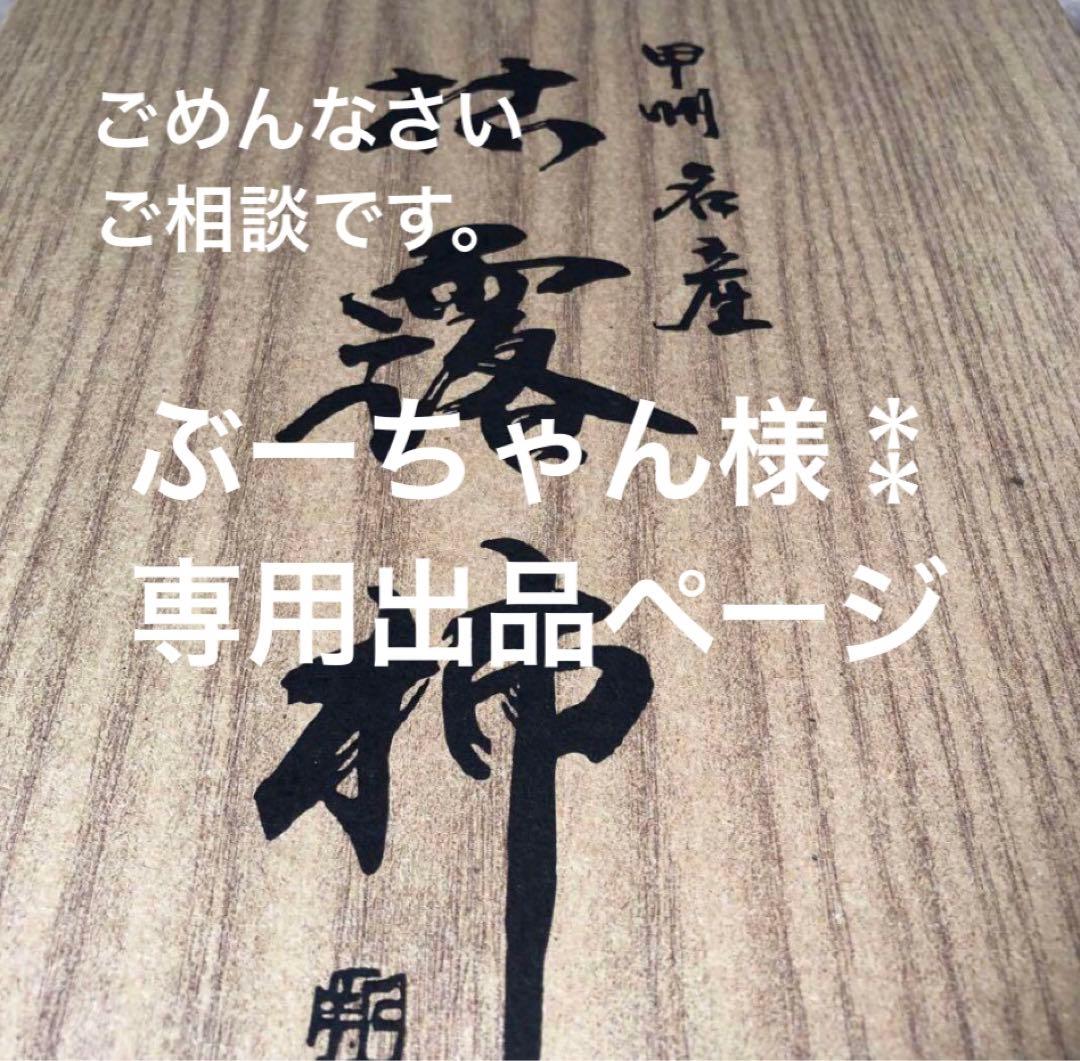 ごめんなさい
ご相談です。
ぶーちゃん様⁑
専用出品ページ
甲州名産
枯露柿